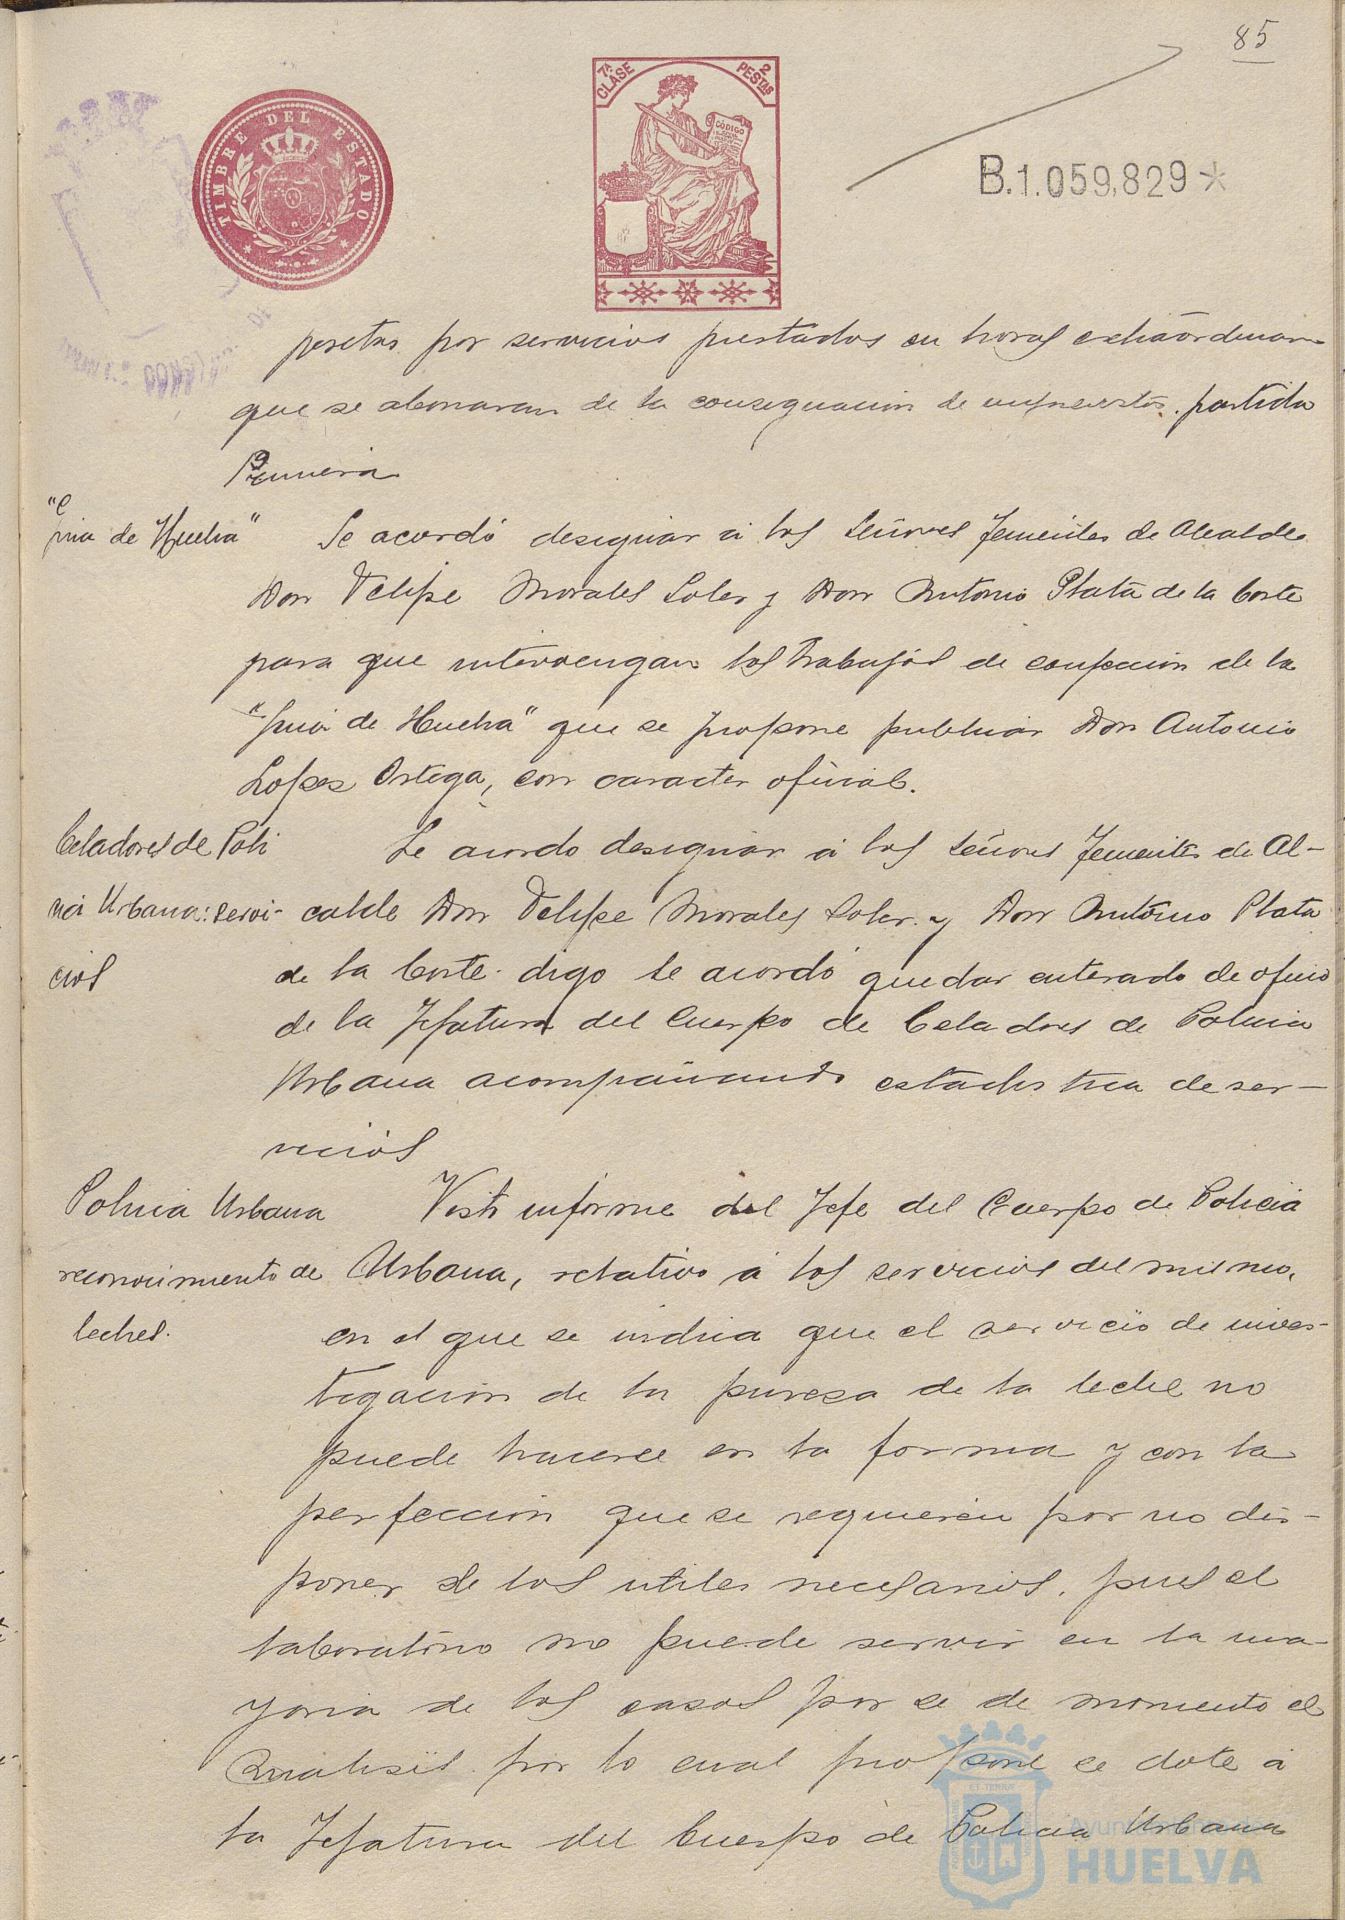 85
TIMBRE DEL ESTADO
7ª CLASE
2 PESTAS
CÓDIGO
B.1.059,829*
pesetas por servicios prestados en horas extraordinar
que se abonaran de la consignacion de imprevistos. partida
Primera
"G
uia de Huelva"
Se acordó designar á los Señores Tenientes de Alcalde
Don Felipe Morales Soler y Don Antonio Plata de la Corte
para que intervengan los trabajos de confeccion de la
"Guia de Huelva" que se propone publicar Don Antonio
Lopez Ortega, con caracter oficial.
Celadores de Poli
cia Urbana: servi-
cios
Se acordo designar á los Señores Tenientes de Al-
calde Don Felipe Morales Soler y Don Antonio Plata
de la Corte. digo se acordó quedar enterado de oficio
de la Jefatura del Cuerpo de Celadores de Policia
Urbana acompañando estadistica de ser-
vicios
Policia Urbana
reconocimiento de
leches.
Visto informe del Jefe del Cuerpo de Policia
Urbana, relativo á los servicios del mismo,
en el que se indica que el servicio de inves-
tigacion de la pureza de la leche no
puede hacerse en la forma y con la
perfeccion que se requieren por no dis-
poner de los utiles necesarios, pues el
laboratorio no puede servir en la ma-
yoria de los casos por se de momento el
analisis por lo cual propone se dote á
la Jefatura del Cuerpo de Policia Urbana
Ayuntamiento de
HUELVA